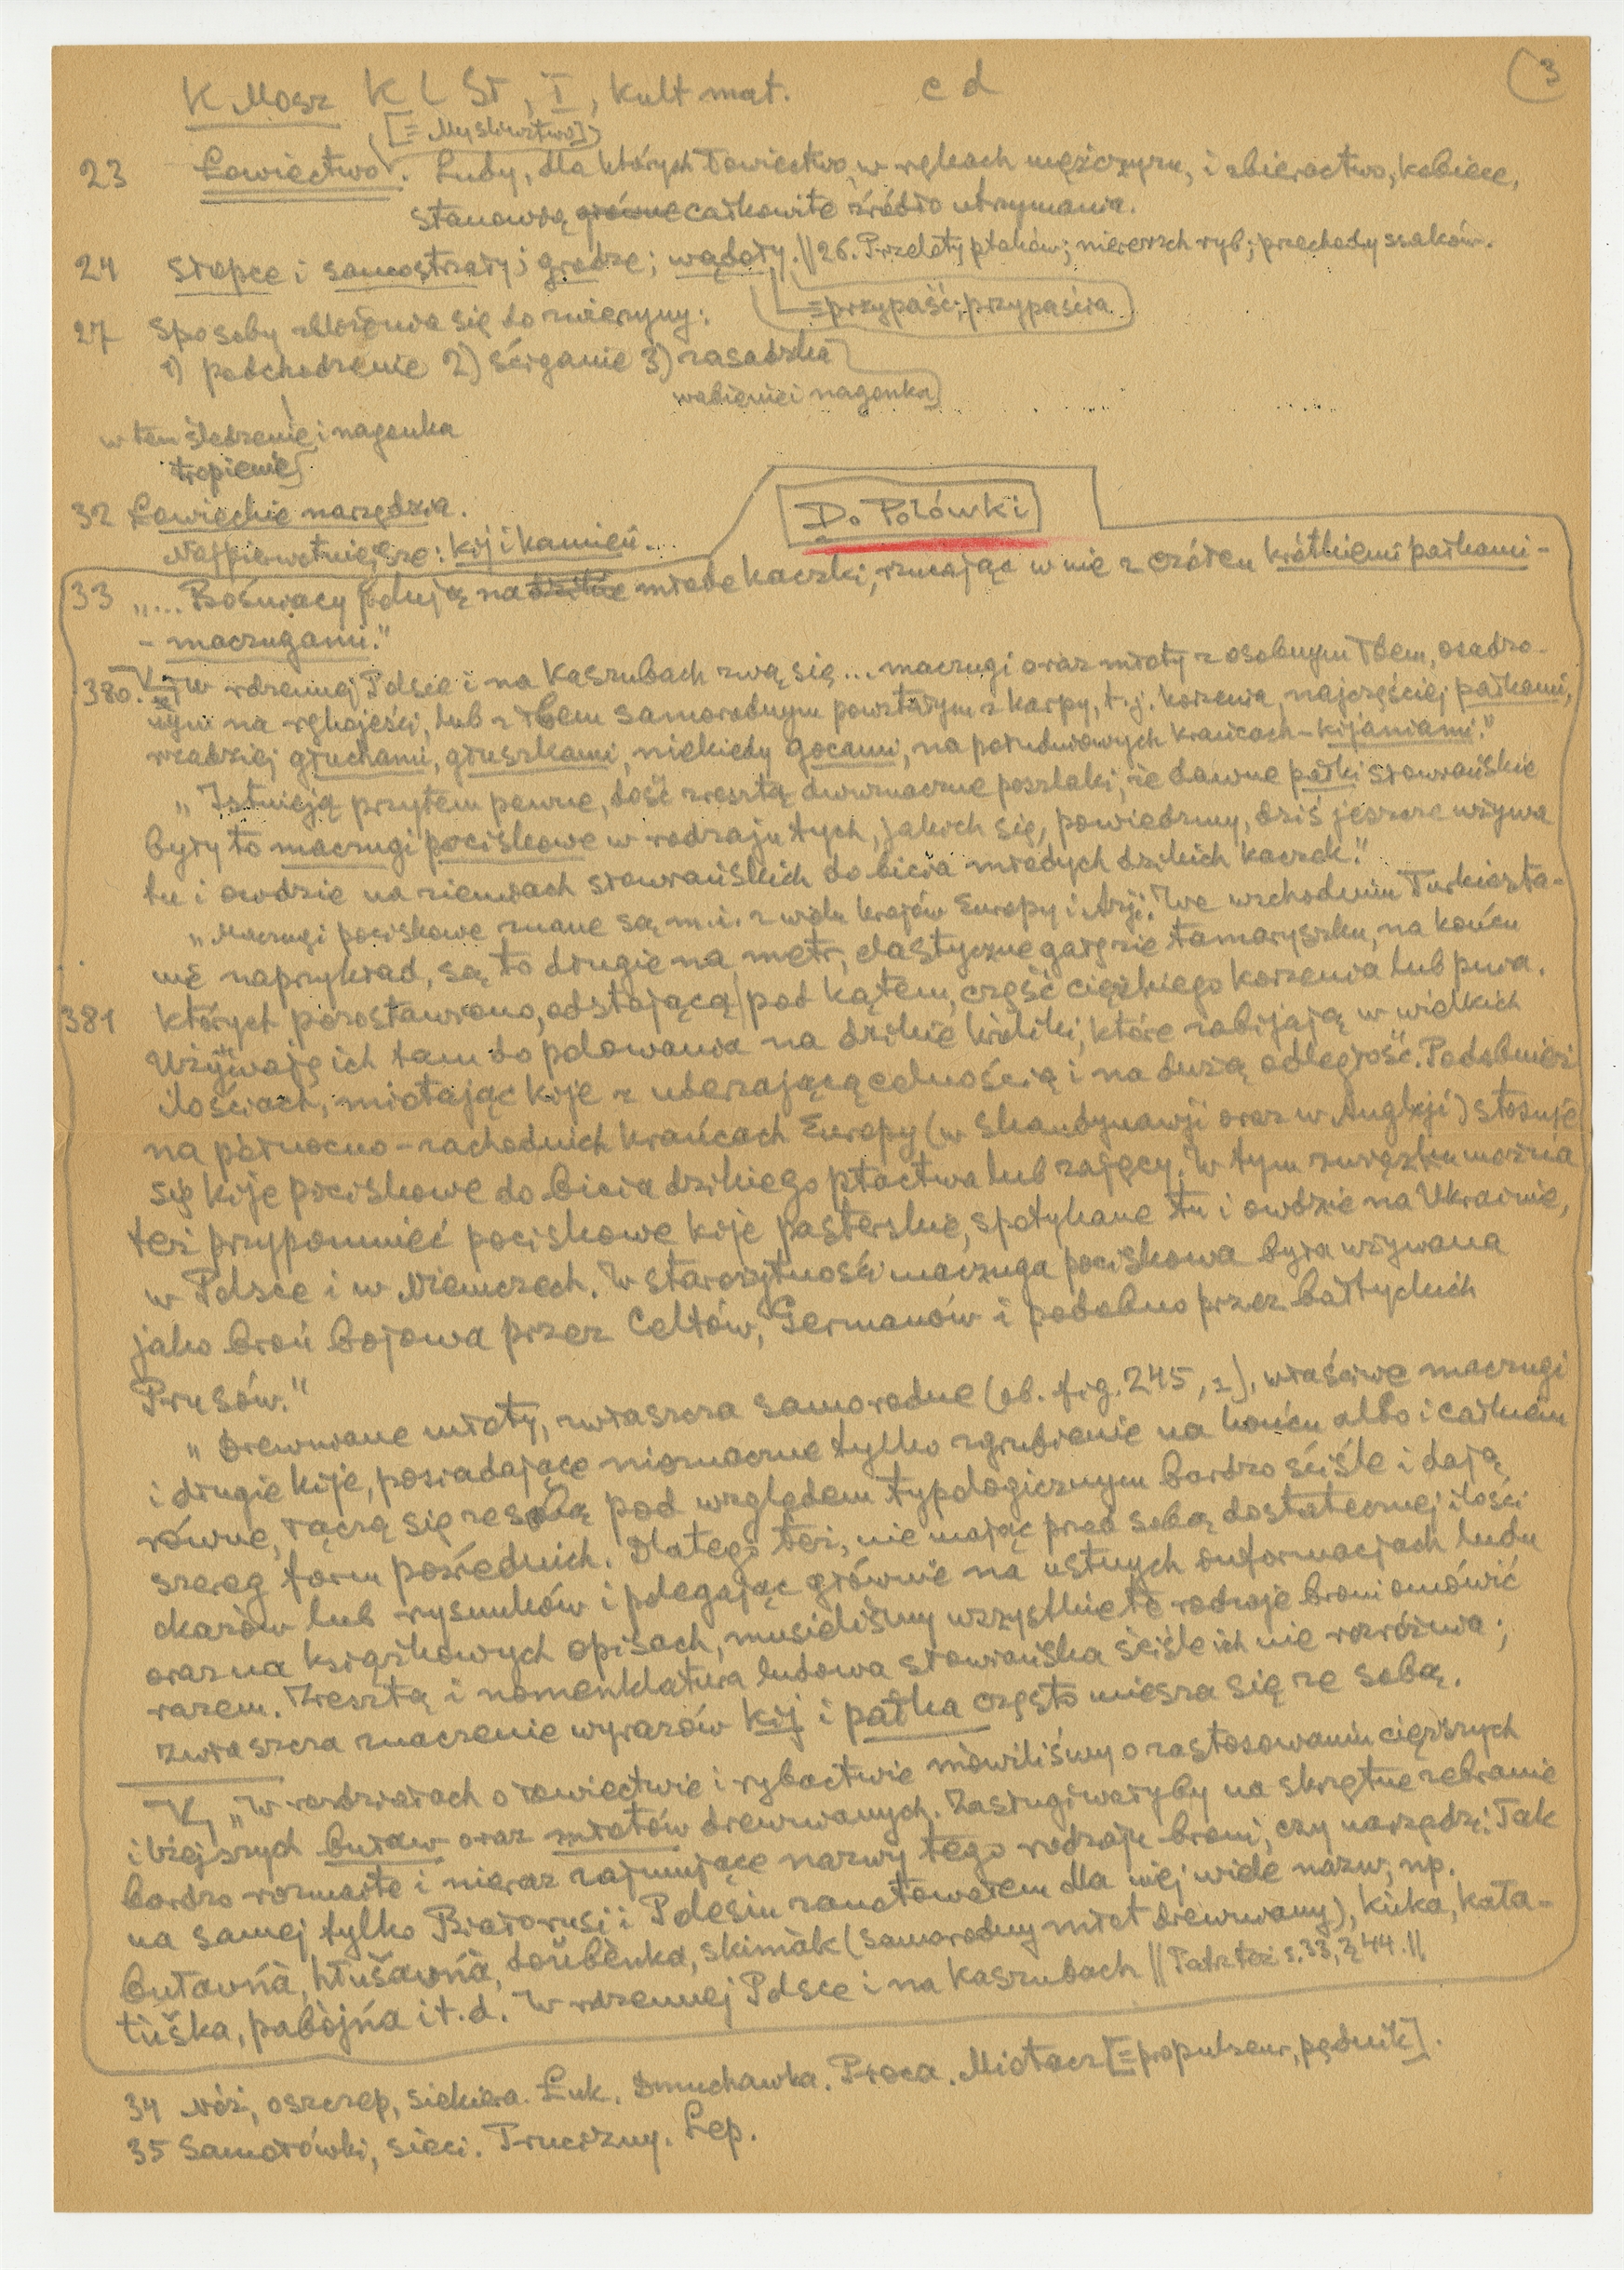 K Mosz K L Sł, I, kult mat. c d (3
[≡ Myśliwstwo]
23 Łowiectwo. Ludy, dla których łowiectwo, w rękach mężczyzn, i zbieractwo, kobiece,
stanowią główne całkowite źródło utrzymania.
24 Słopce i samostrzały; grodze; wądoły. || 26. Przeloty ptaków; nierersch ryb; przechody ssaków.
≡ przypaść; przypaścia
27 Sposoby zbliżenia się do zwierzyny:
1) podchodzenie 2) ściganie 3) zasadzka
wabienie i nagonka
w tem śledzenie i nagonka
tropienie
32 Łowieckie narzędzia.
Do Połówki
Najpierwotniejsze: kij i kamień.
33 „... Bośniacy polują na dzikie młode kaczki, rzucając w nie z czółen krótkiemi pałkami-
- maczugami."
380. W rdzennej Polsce i na Kaszubach zwą się ... maczugi oraz młoty z osobnym tłem, osadzo-
nym na rękojeści, lub z łbem samorodnym powstałym z karpy, t.j. korzenia, najczęściej pałkami,
rzadziej głuchami, głuszkami, niekiedy gocami, na południowych krańcach - kijaniami."
„Istnieją przytem pewne, dość zresztą dwuznaczne poszlaki, że dawne pałki słowiańskie
były to maczugi pociskowe w rodzaju tych, jakich się, powiedzmy, dziś jeszcze używa
tu i owdzie na ziemiach słowiańskich do bicia młodych dzikich kaczek."
„Maczugi pociskowe znane są m.i. z wielu krajów Europy i Azji. We wschodnim Turkiesta-
nie naprzykład, są to długie na metr, elastyczne gałęzie tamaryszku, na końcu
381 których pozostawiono, odstającą pod kątem, część ciężkiego korzenia lub pnia.
Używają ich tam do polowania na dzikie króliki, które zabijają w wielkich
ilościach, miotając kije z uderzającą celnością i na dużą odległość. Podobnież
na północno-zachodnich krańcach Europy (w Skandynawji oraz w Anglji) stosuje
się kije pociskowe do bicia dzikiego ptactwa lub zajęcy. W tym związku można
też przypomnieć pociskowe kije pasterskie, spotykane tu i owdzie na Ukrainie,
w Polsce i w Niemczech. W starożytności maczuga pociskowa była używana
jako broń bojowa przez Celtów, Germanów i podobno przez bałtyckich
Prusów."
„Drewniane młoty, zwłaszcza samorodne (ob. fig. 245, 2), właściwe maczugi
i długie kije, posiadające nieznaczne tylko zgrubienie na końcu albo i całkiem
równe, łączą się ze sobą pod względem typologicznym bardzo ściśle i dają
szereg form pośrednich. Dlatego też, nie mając przed sobą dostatecznej ilości
okazów lub rysunków i polegając głównie na ustnych informacjach ludu
oraz na książkowych opisach, musieliśmy wszystkie te rodzaje broni omówić
razem. Zresztą i nomenklatura ludowa słowiańska ściśle ich nie rozróżnia;
zwłaszcza znaczenie wyrazów kij i pałka często miesza się ze sobą.
„W rozdziałach o łowiectwie i rybactwie mówiliśmy o zastosowaniu cięższych
i lżejszych buław oraz młotów drewnianych. Zasługiwałyby na skrzętne zebranie
bardzo rozmaite i nieraz zajmujące nazwy tego rodzaju broni, czy narzędzi. Tak
na samej tylko Białorusi i Polesiu zanotowałem dla niej wiele nazw, np.
buławńà, hłušawńà, doŭbènka, skimàk (samorodny młot drewniany), kùka, kała-
tùška, pabòjńa i t.d. W rdzennej Polsce i na Kaszubach || Patrz też s. 33, § 44. ||
34 Nóż, oszczep, siekiera. Łuk. Dmuchawka. Proca. Miotacz [≡ propulseur, pędnik].
35 Samołówki, sieci. Trucizny. Lep.